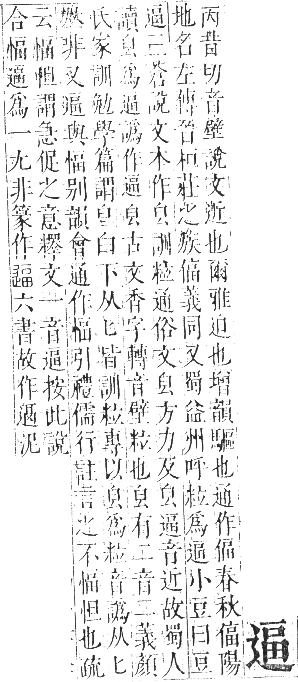 逼
丙昔切音壁說文近也爾雅迫也增韻驅也通作偪春秋偪陽
地名左傳晉桓莊之族偪義同又蜀益州呼粒為逼小豆曰豆
逼三蒼說文木作皀訓粒通俗文皀方力反皀逼音近故蜀人
讀皀為逼譌作逼皀古文香字轉音壁粒也皀有二音二義顏
氏家訓勉學篇謂皀白下从匕皆訓粒專以皀為粒音譌从匕
非又逼與愊別韻會通作愊引禮儒行註言之不愊怛也疏
云愊怛謂急促之意繆文一音逼按此說
合愊逼為一尤非篆作六書故作泥